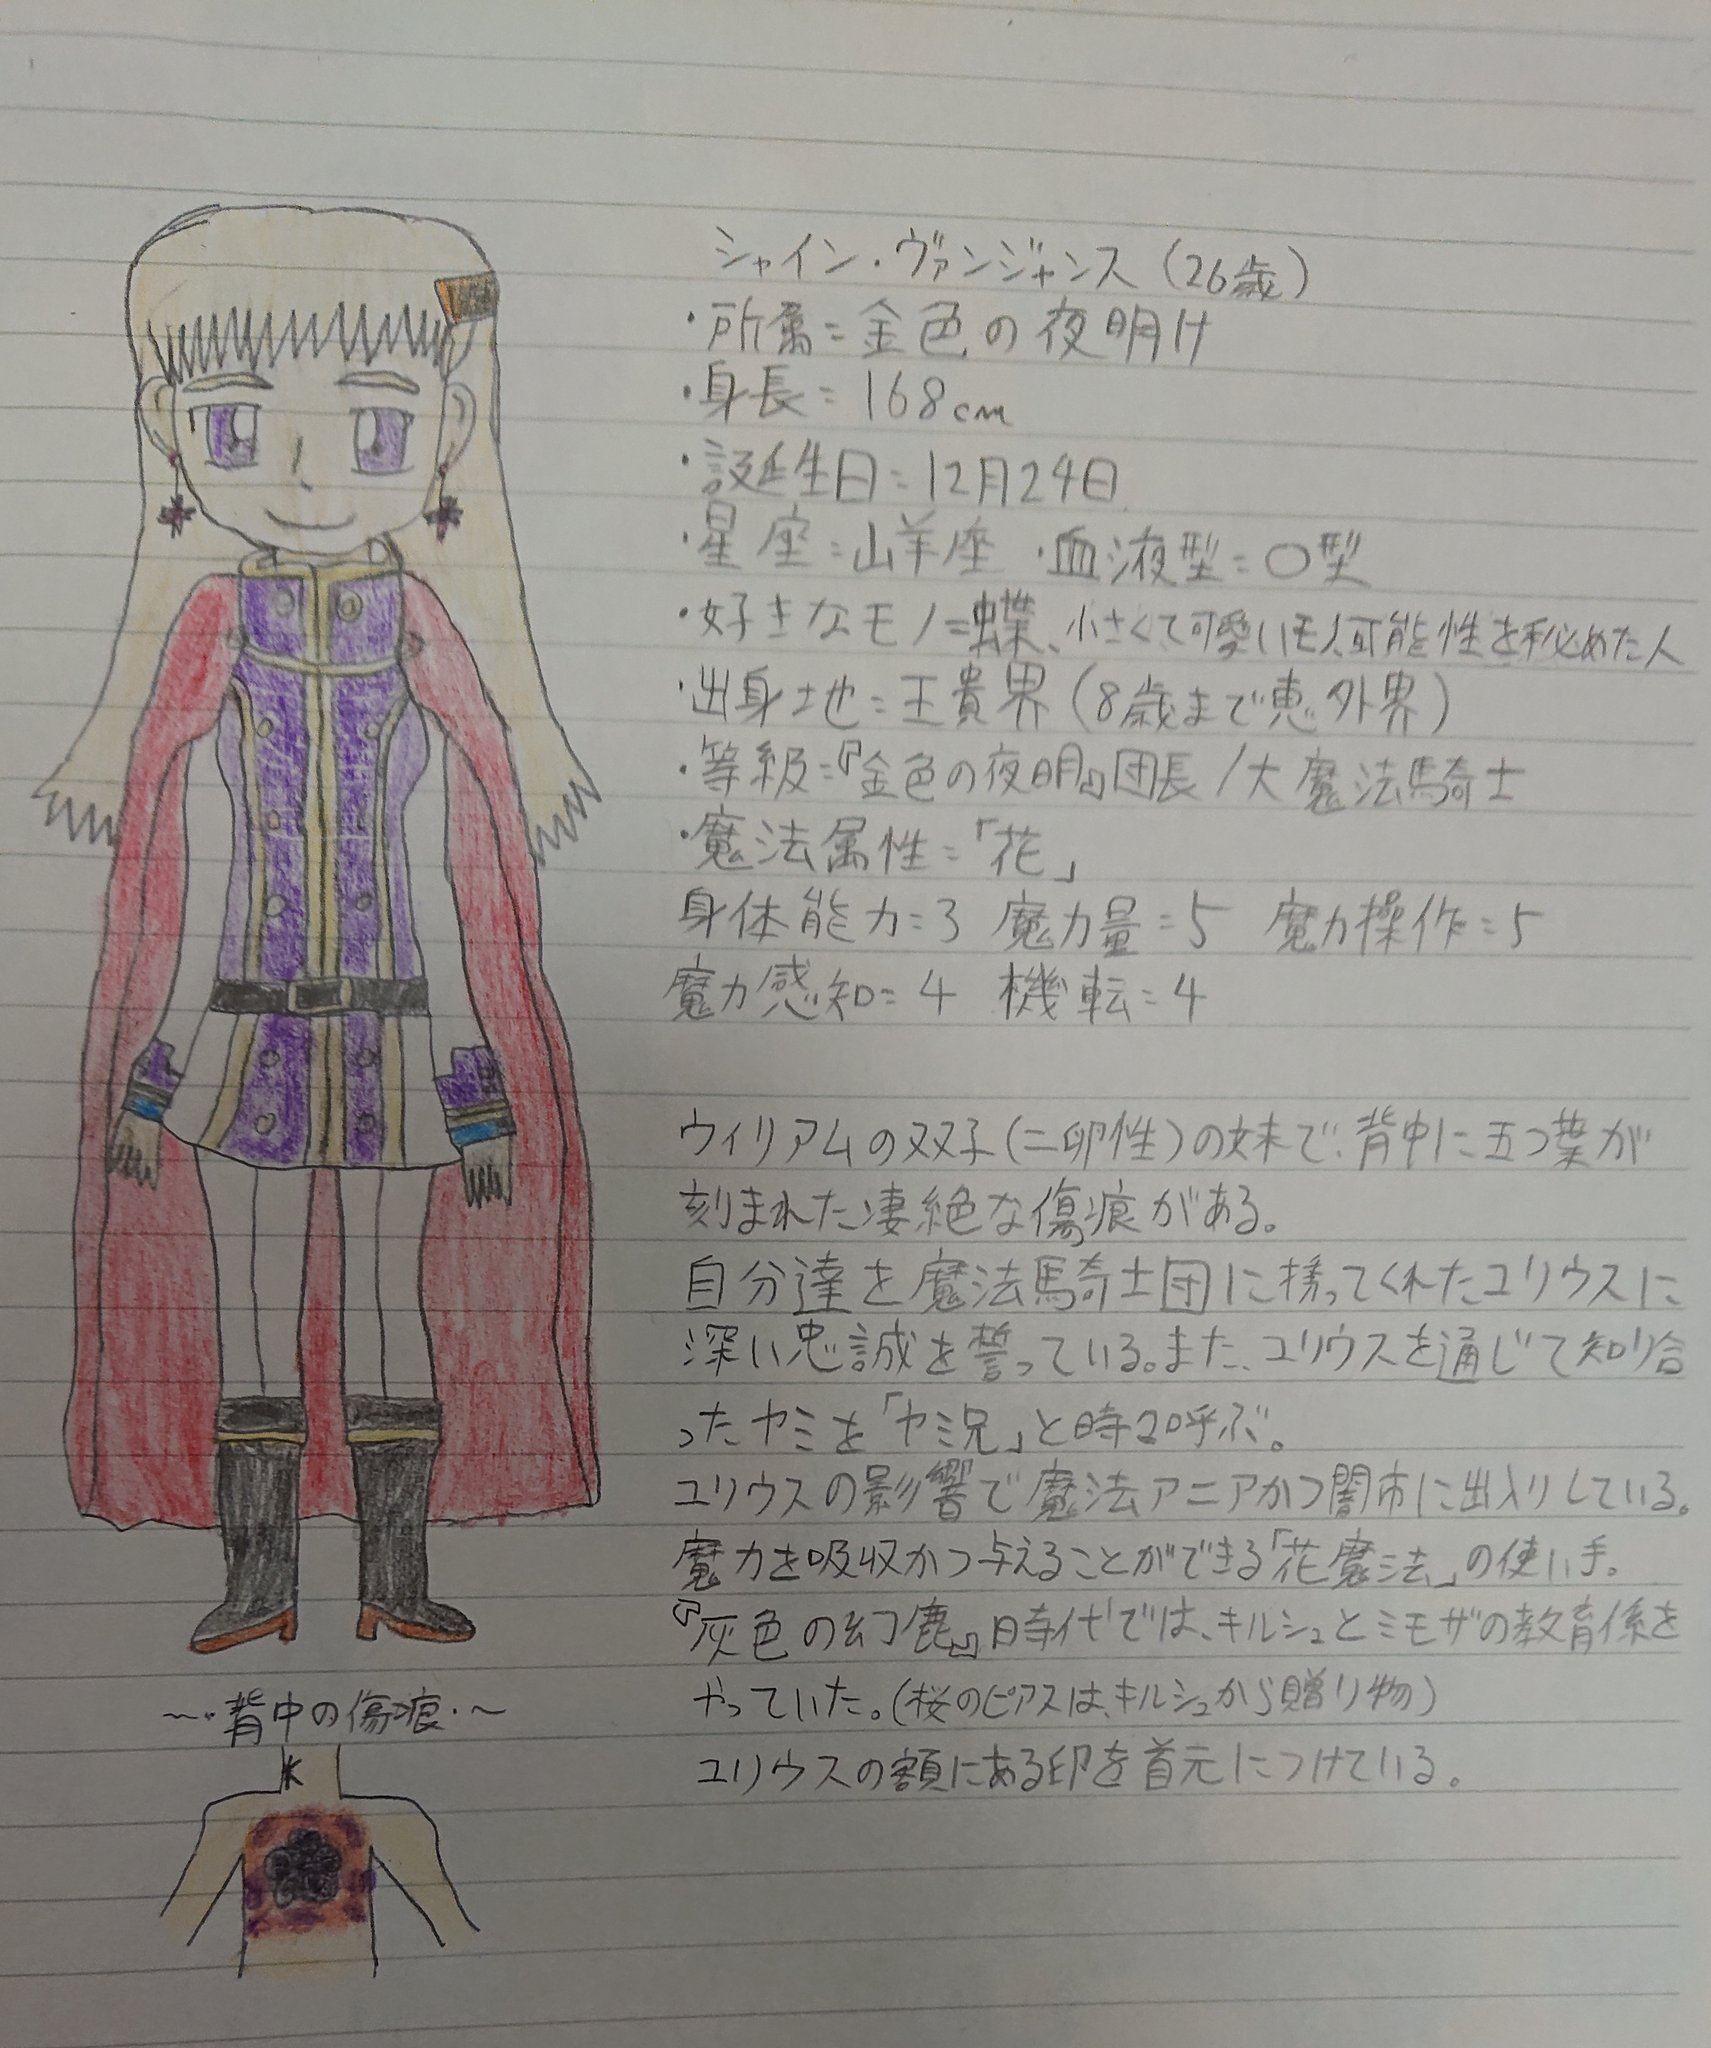 シャイン・ヴァンジャンス(26歳)
・所属=金色の夜明け
・身長=168cm
・誕生日=12月24日
・星座=山羊座 ・血液型=O型
・好きなモノ=蝶、小さくて可愛いモノ、可能性を秘めた人
・出身地=王貴界(8歳まで恵外界)
・等級=『金色の夜明』団長/大魔法騎士
・魔法属性=「花」
身体能力=3 魔力量=5 魔力操作=5
魔力感知=4 機転=4
ウィリアムの双子(二卵性)の妹で、背中に五つ葉が
刻まれた凄絶な傷痕がある。
自分達を魔法騎士団に誘ってくれたユリウスに
深い忠誠を誓っている。また、ユリウスを通じて知り合
ったヤミを「ヤミ兄」と時々呼ぶ。
ユリウスの影響で魔法マニアかつ闇市に出入りしている。
魔力を吸収かつ与えることができる「花魔法」の使い手。
『灰色の幻鹿』時代では、キルシュとミモザの教育係を
やっていた。(桜のピアスは、キルシュから贈り物)
ユリウスの額にある印を首元につけている。
~・背中の傷痕・~